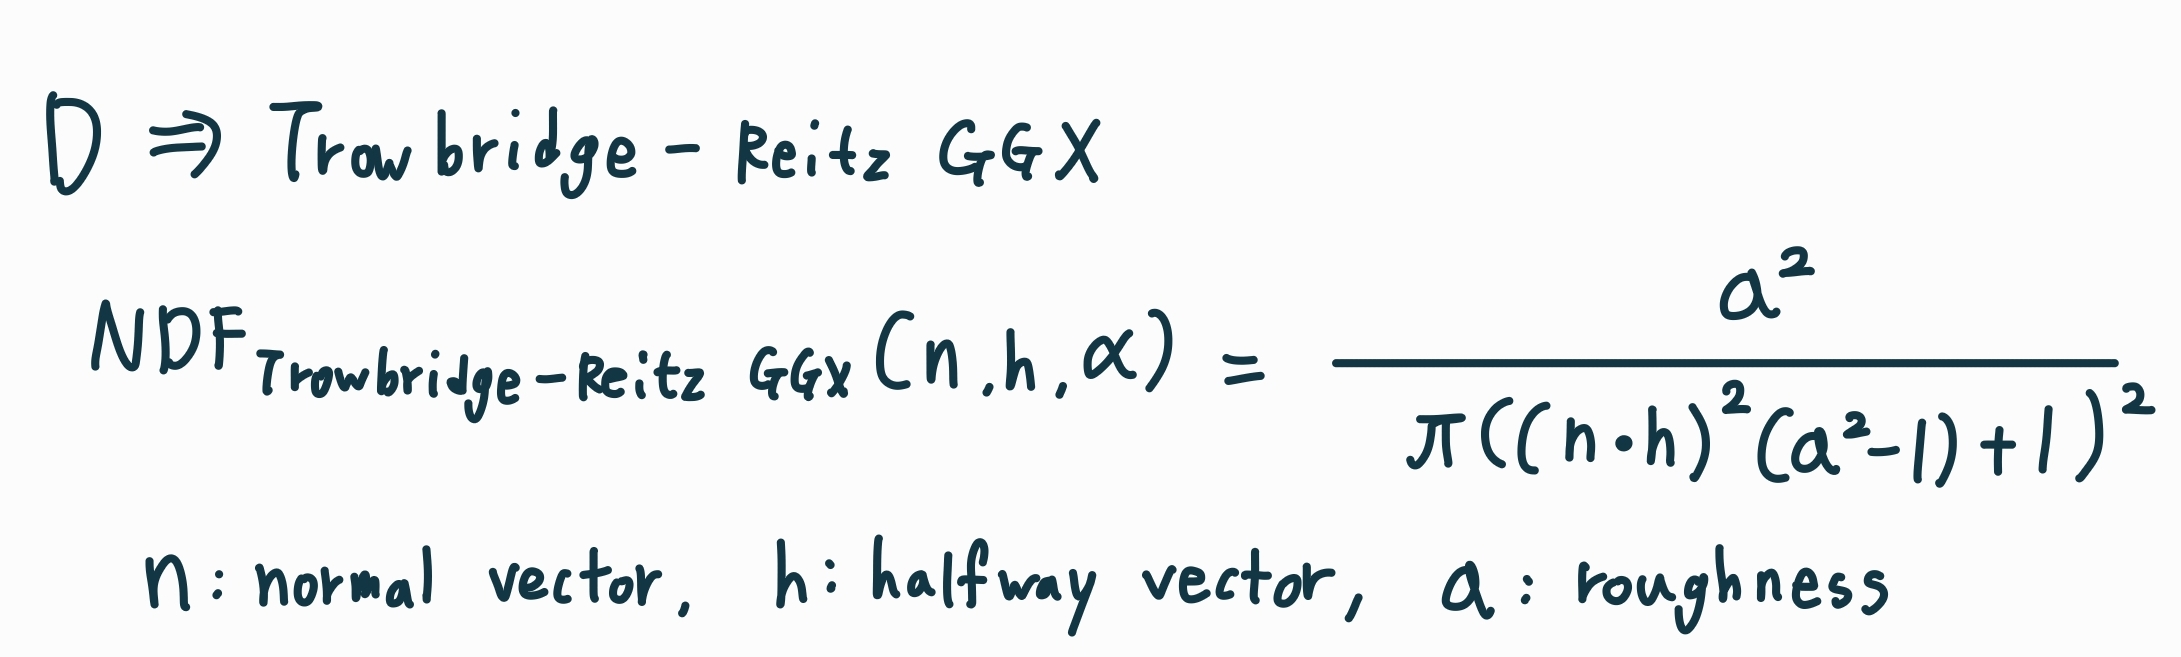 D ⇒ Trowbridge-Reitz GGX
NDF_{Trowbridge-Reitz GGX}(n, h, α) = \frac{a^2}{π((n·h)^2(a^2-1)+1)^2}
n: normal vector, h: halfway vector, a: roughness